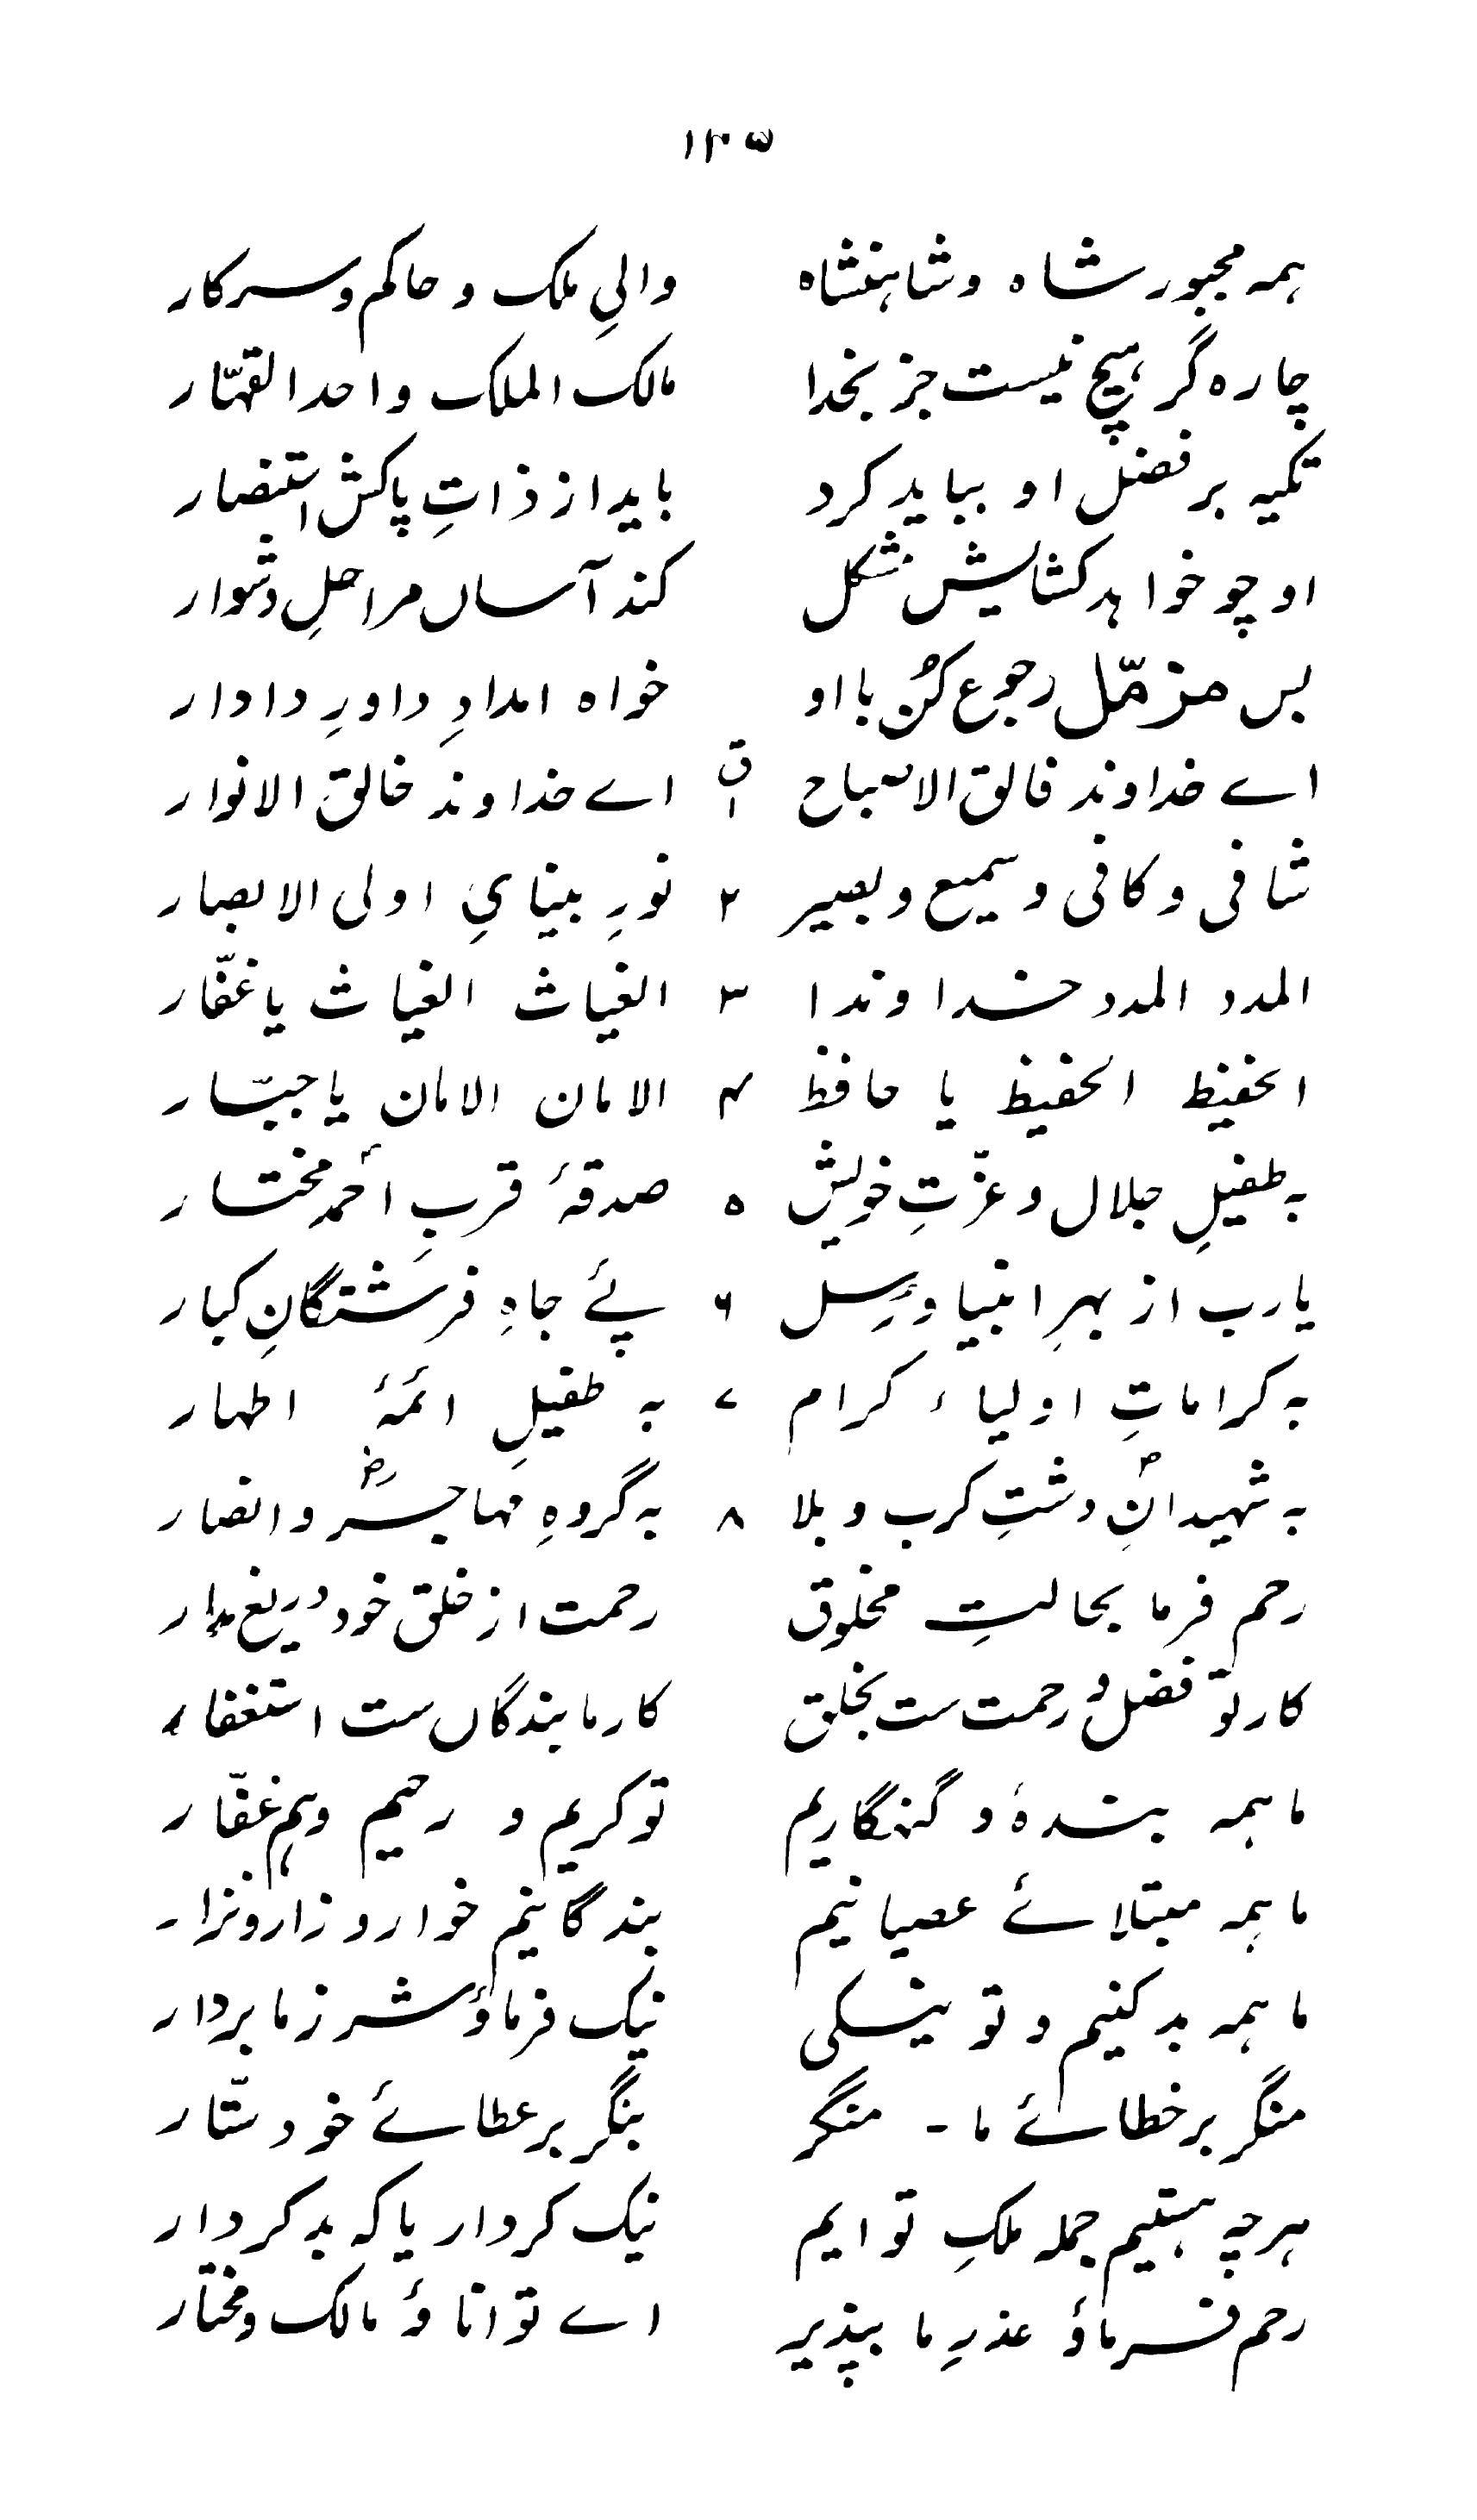 ۱۳۵
ہمہ مجبور شاہ و شاہنشاہ والیِ ملک و حاکم و سرکار
چارہ گر ہیچ نیست جز بخدا مالک الملک واحد القہّار
تکیہ بر فضل او بباید کرد باید از ذاتِ پاکش استنصار
او چو خواہد کشایش مشکل کند آساں مراحلِ دشوار
بس مزمّل رجوع کُن با او خواہ امدادِ داورِ دادار
اے خداوند فالق الاصباح ق ۱ اے خداوند خالق الانوار
شافی و کافی و سمیع و بصیر ۲ نورِ بینایِ اولی الابصار
المدد المدد خداوندا ۳ الغیاث الغیاث یا غفّار
الحفیظ الحفیظ یا حافظ ۴ الامان الامان یا جبّار
بہ طفیلِ جلال و عزّتِ خویش ۵ صدقۂ قربِ احمدؐ مختار
یارب از بہرِ انبیا و رُسل ۶ پئے جاہِ فرشتگانِ کبار
بہ کراماتِ اولیاء کرام ۷ بہ طفیلِ ائمۂ اطہار
بہ شہیدانِؓ دشتِ کرب و بلا ۸ بہ گروہِ مہاجرؓ و انصار
رحم فرما بحالتِ مخلوق رحمت از خلق خود دریغ مدار
کار تو فضل و رحمت ست بخلق کار ما بندگاں ست استغفار
ما ہمہ بندۂ و گنہگاریم تو کریم و رحیم وہم غفّار
ما ہمہ مبتلائے عصیانیم بندگانیم خوار و زار و نزار
ما ہمہ بد کنیم و تو نیکی نیک فرما و شر ز ما بردار
منگر بر خطائے ما ۔ منگر بنگر بر عطائے خود ستّار
ہرچہ ہستیم جملہ ملکِ توایم نیک کردار یا کہ بد کردار
رحم فرماؤ عذرِ ما بپذیر اے توانا و مالک و مختار